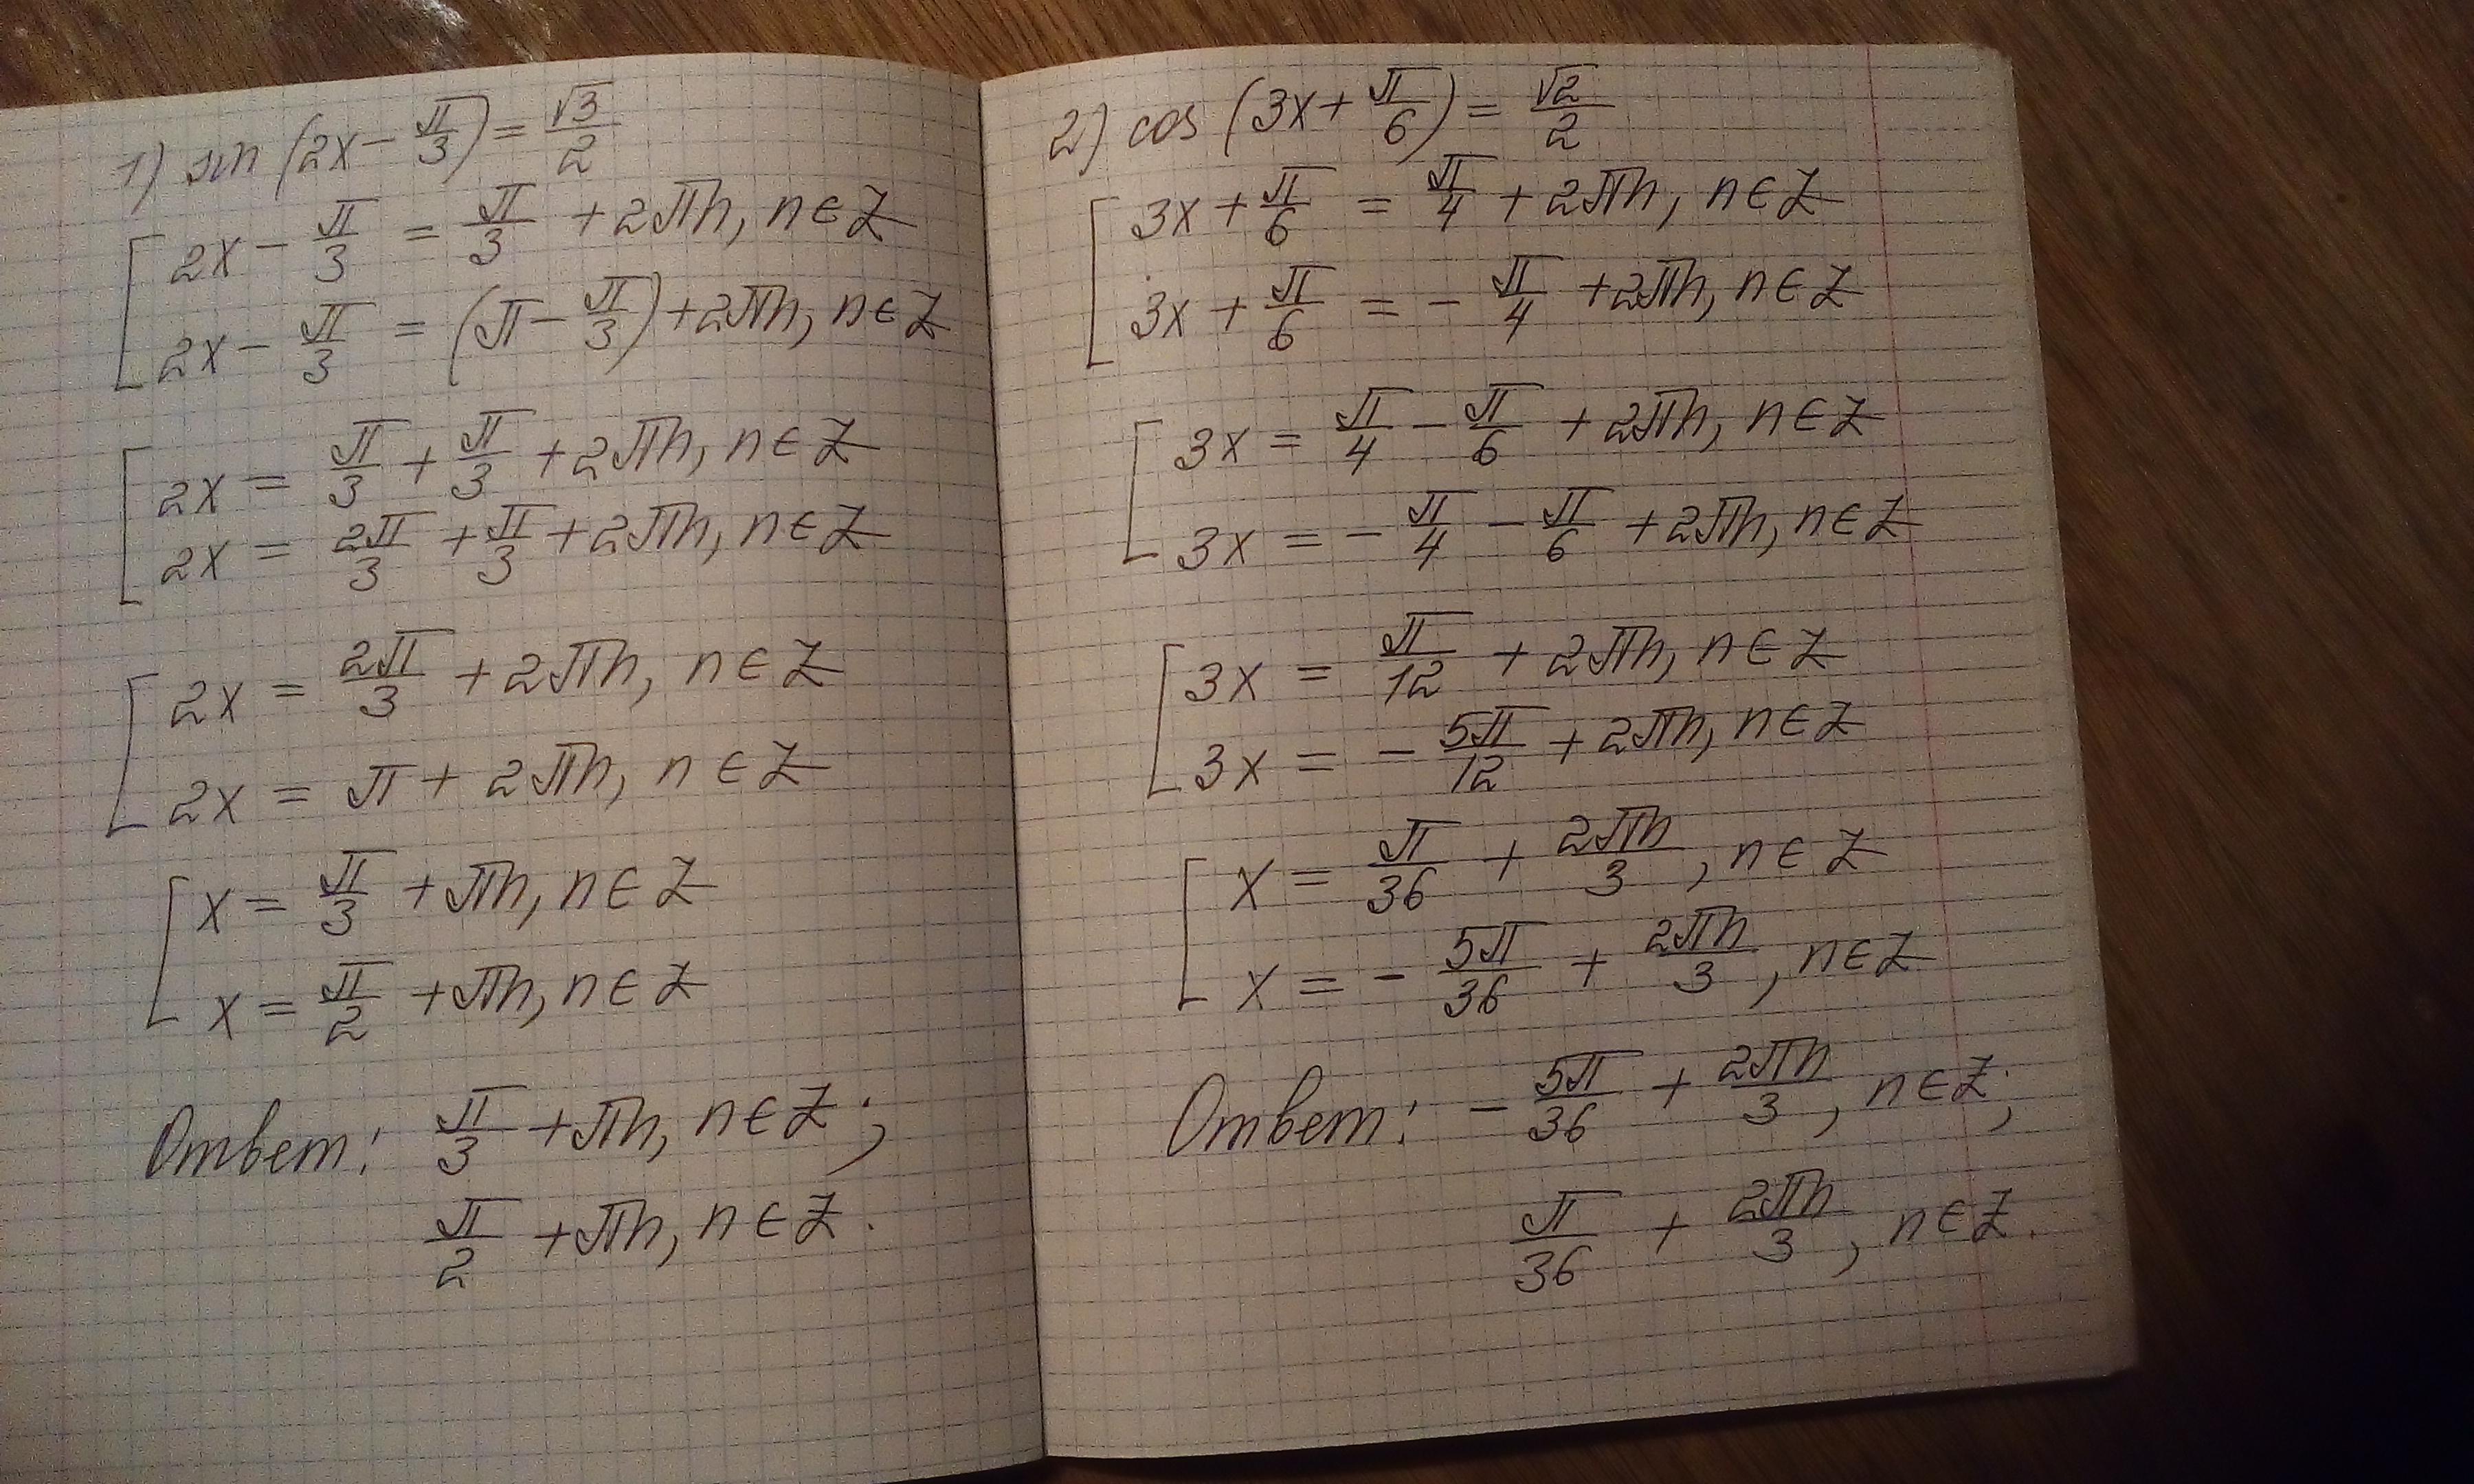 1) sin (2x - π/3) = √3/2
[ 2x - π/3 = π/3 + 2πn, n ∈ Z
2x - π/3 = (π - π/3) + 2πn, n ∈ Z
[ 2x = π/3 + π/3 + 2πn, n ∈ Z
2x = 2π/3 + π/3 + 2πn, n ∈ Z
[ 2x = 2π/3 + 2πn, n ∈ Z
2x = π + 2πn, n ∈ Z
[ x = π/3 + πn, n ∈ Z
x = π/2 + πn, n ∈ Z
Ответ: π/3 + πn, n ∈ Z;
π/2 + πn, n ∈ Z.
2) cos (3x + π/6) = √2/2
[ 3x + π/6 = π/4 + 2πn, n ∈ Z
3x + π/6 = - π/4 + 2πn, n ∈ Z
[ 3x = π/4 - π/6 + 2πn, n ∈ Z
3x = - π/4 - π/6 + 2πn, n ∈ Z
[ 3x = π/12 + 2πn, n ∈ Z
3x = - 5π/12 + 2πn, n ∈ Z
[ x = π/36 + 2πn/3, n ∈ Z
x = - 5π/36 + 2πn/3, n ∈ Z
Ответ: - 5π/36 + 2πn/3, n ∈ Z;
π/36 + 2πn/3, n ∈ Z.